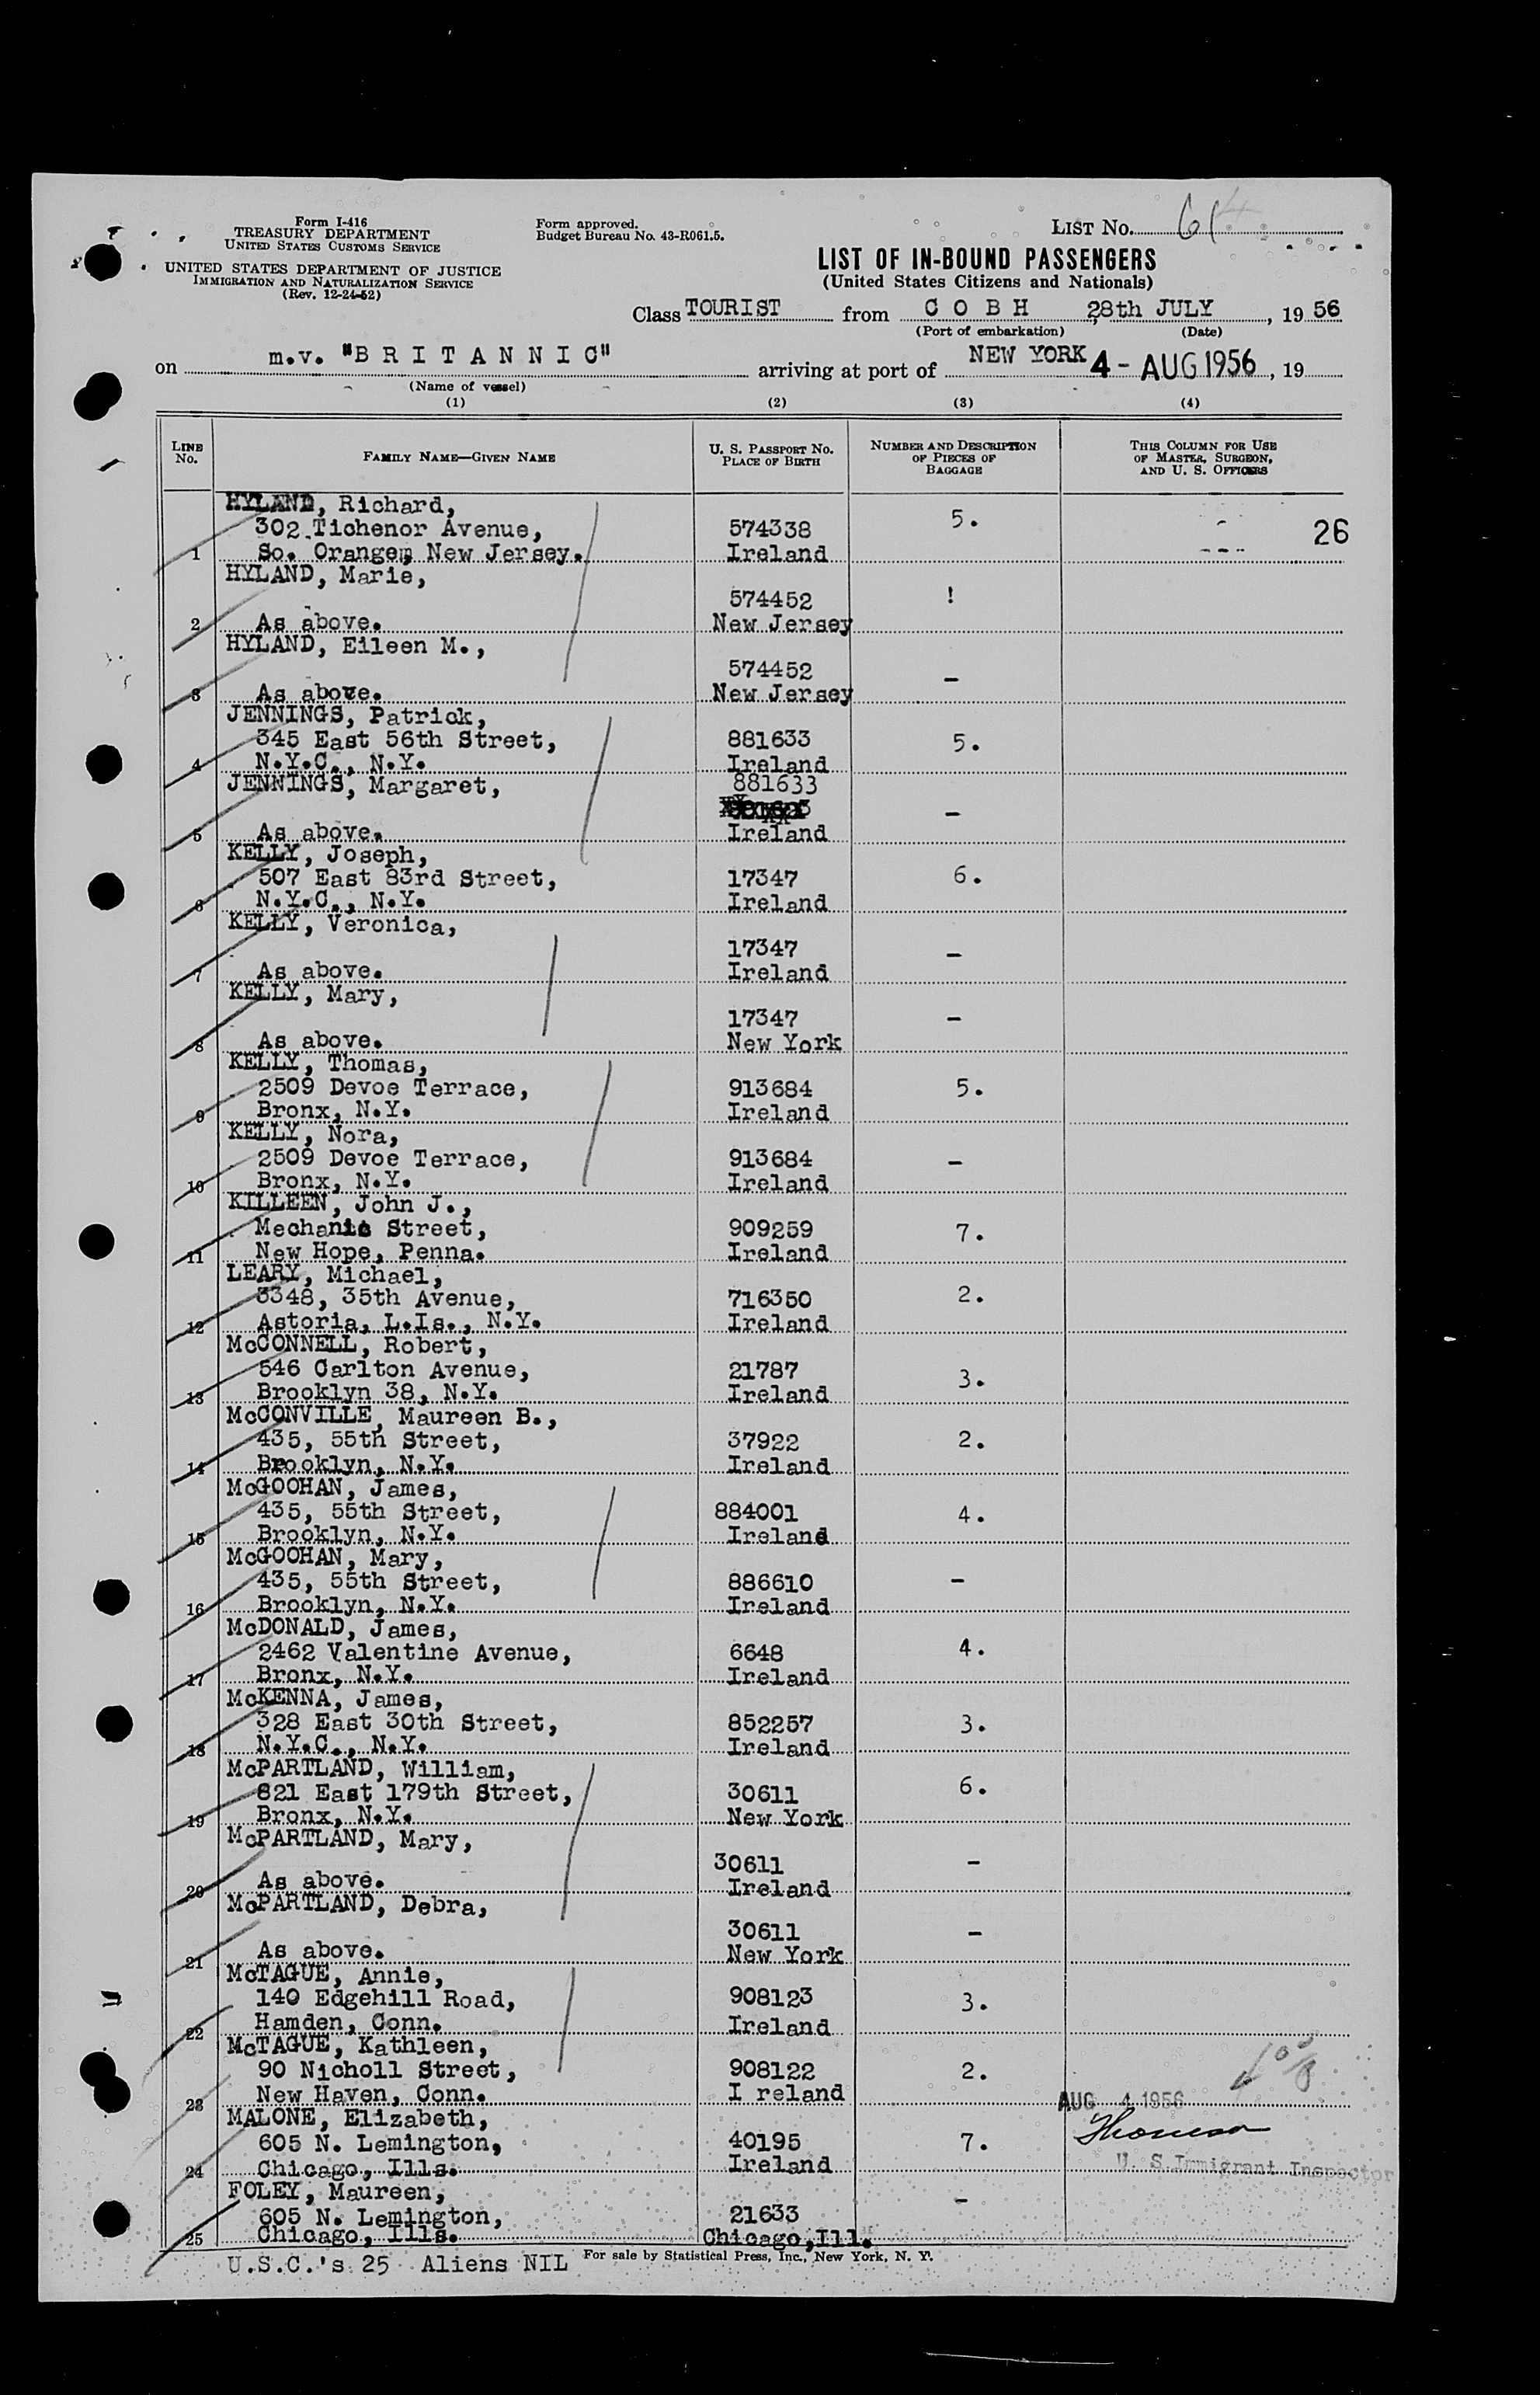 Form I-416
TREASURY DEPARTMENT
UNITED STATES CUSTOMS SERVICE
UNITED STATES DEPARTMENT OF JUSTICE
IMMIGRATION AND NATURALIZATION SERVICE
(Rev. 12-24-52)
Form approved.
Budget Bureau No. 43-R061.5.
LIST No. 61
LIST OF IN-BOUND PASSENGERS
(United States Citizens and Nationals)
Class TOURIST from C O B H 28th JULY, 19 56
(Port of embarkation) (Date)
on m.v. "B R I T A N N I C" arriving at port of NEW YORK 4 - AUG 1956, 19
(Name of vessel)
(1) (2) (3) (4)
LINE No. FAMILY NAME—GIVEN NAME U. S. PASSPORT No. PLACE OF BIRTH NUMBER AND DESCRIPTION OF PIECES OF BAGGAGE THIS COLUMN FOR USE OF MASTER, SURGEON, AND U. S. OFFICERS
HYLAND, Richard,
302 Tichenor Avenue, 574338 5. 26
1 So. Orangem, New Jersey. Ireland
HYLAND, Marie,
574452 !
2 As above. New Jersey
HYLAND, Eileen M.,
574452 -
3 As above. New Jersey
JENNINGS, Patrick,
345 East 56th Street, 881633 5.
4 N.Y.C., N.Y. Ireland
JENNINGS, Margaret, 881633
-
5 As above. Ireland
KELLY, Joseph,
507 East 83rd Street, 17347 6.
6 N.Y.C., N.Y. Ireland
KELLY, Veronica,
17347 -
7 As above. Ireland
KELLY, Mary,
17347 -
8 As above. New York
KELLY, Thomas,
2509 Devoe Terrace, 913684 5.
9 Bronx, N.Y. Ireland
KELLY, Nora,
2509 Devoe Terrace, 913684 -
10 Bronx, N.Y. Ireland
KILLEEN, John J.,
Mechanic Street, 909259 7.
11 New Hope, Penna. Ireland
LEARY, Michael,
3348, 35th Avenue, 716350 2.
12 Astoria, L.Is., N.Y. Ireland
McCONNELL, Robert,
546 Carlton Avenue, 21787 3.
13 Brooklyn 38, N.Y. Ireland
McCONVILLE, Maureen B.,
435, 55th Street, 37922 2.
14 Brooklyn, N.Y. Ireland
McGOOHAN, James,
435, 55th Street, 884001 4.
15 Brooklyn, N.Y. Ireland
McGOOHAN, Mary,
435, 55th Street, 886610 -
16 Brooklyn, N.Y. Ireland
McDONALD, James,
2462 Valentine Avenue, 6648 4.
17 Bronx, N.Y. Ireland
McKENNA, James,
328 East 30th Street, 852257 3.
18 N.Y.C., N.Y. Ireland
McPARTLAND, William,
821 East 179th Street, 30611 6.
19 Bronx, N.Y. New York
McPARTLAND, Mary,
30611 -
20 As above. Ireland
McPARTLAND, Debra,
30611 -
21 As above. New York
McTAGUE, Annie,
140 Edgehill Road, 908123 3.
22 Hamden, Conn. Ireland
McTAGUE, Kathleen,
90 Nicholl Street, 908122 2.
23 New Haven, Conn. I reland AUG 4 1956
MALONE, Elizabeth,
605 N. Lemington, 40195 7.
24 Chicago, Ills. Ireland U. S. Immigrant Inspector
FOLEY, Maureen,
605 N. Lemington, 21633 -
25 Chicago, Ills. Chicago,Ill.
U.S.C.'s 25 Aliens NIL For sale by Statistical Press, Inc., New York, N. Y.